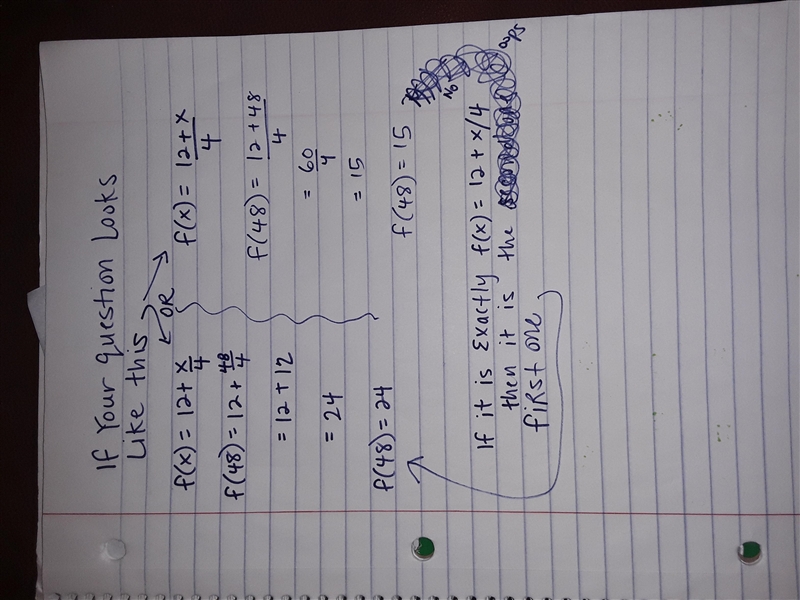 If Your question Looks
Like this
OR
f(x) = 12 + x/4
f(48) = 12 + 48/4
= 12 + 12
= 24
f(48) = 24
f(x) = 12 + x/4
f(48) = 12 + 48/4
= 60/4
= 15
f(48) = 15
No
oops
If it is Exactly f(x) = 12 + x/4
then it is the
first one